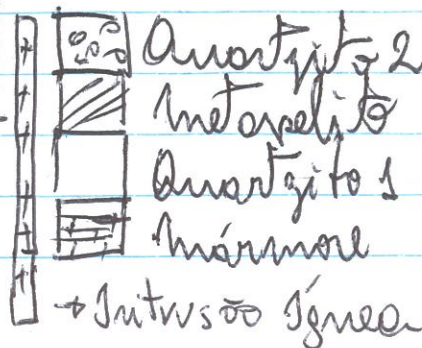 Quartzito 2
Metapelito
Quartzito 1
Mármore
→ Intrusão Ígnea